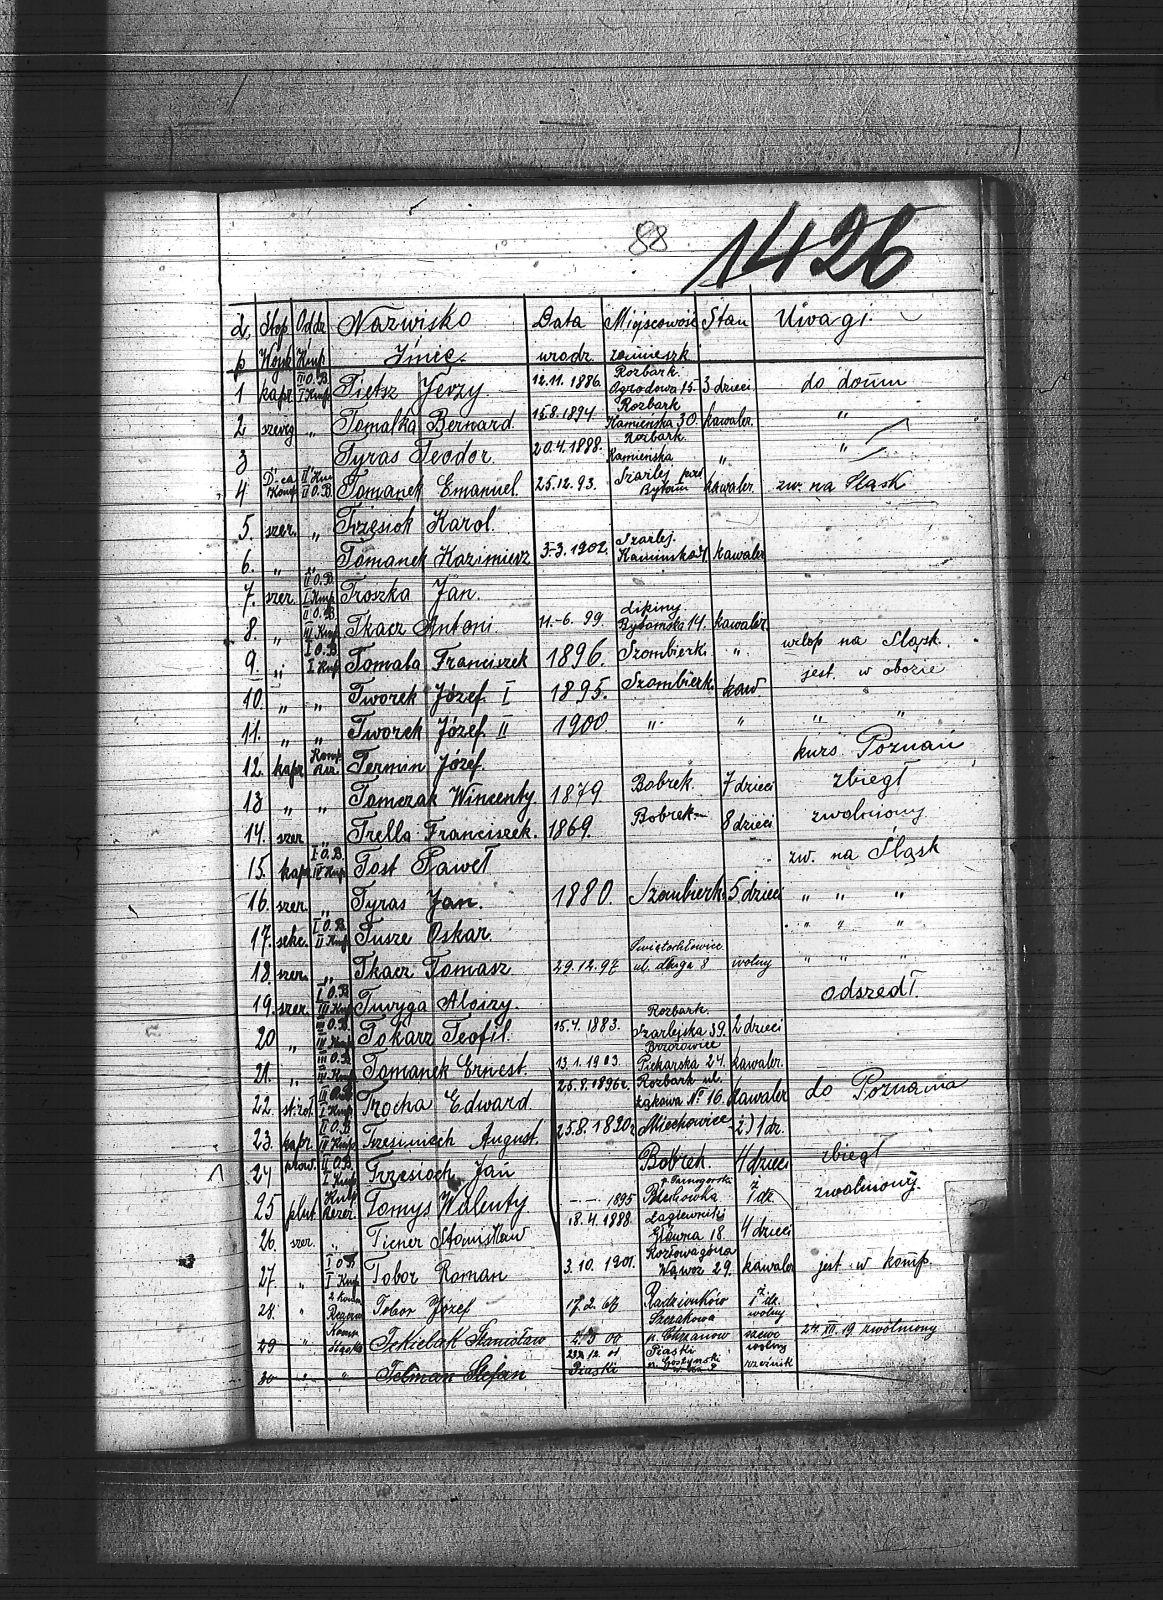 88
1426
L. Stop. Oddz. Nazwisko Data Miejscowość Stan Uwagi.
p. Wojsk Kmp Imię. urodz. zamieszk
1 kapr III O.B. I Kmp Tietsz Jerzy 12.11.1886. Rozbark. Ogrodowa 15 3 dzieci do domu
2 szereg " Tomalka Bernard 15.8.1894 Rozbark Kamieńska 30. kawaler. "
3 Tyras Teodor. 20.4.1888. Rozbark. Kamieńska " "
4 D-ca Komp II O.B. Tomanek Emanuel. 25.12.93. Szarlej pod Bytom kawaler zw. na Śląsk
5 szer. " Trzęsiok Karol.
6. " Tomanek Kazimierz 3.3.1902. Szarlej. kawaler
7. szer. II O.B. I Kmp Troszka Jan.
8. " II O.B. III Kmp Tkacz Antoni. 11.-6.99. Bytomska 14. kawaler.
9. " I O.B. I Kmp Tomala Franciszek 1896. Szombierk. " urlop na Śląsk.
10. " " Tworek Józef I 1895. Szombierk. kaw. jest w obozie
11. " " Tworek Józef II 1900. " " " "
12. kapr Komp. Termin Józef. kurs Poznań
13 " " Tomczak Wincenty. 1879 Bobrek. 7 dzieci zbiegł
14. szer Trella Franciszek. 1869. Bobrek 8 dzieci zwolniony
15. kapr I O.B. IV Kmp Tost Paweł zw. na Śląsk
16. szer. " Tyras Jan. 1880. Szombierk. 5 dzieci " " "
17. sekc. I O.B. II Kmp Tusze Oskar. " " "
18. szer. " Tkacz Tomasz 29.12.97 Świętochłowice ul. długa 8 wolny " " "
19. szer. I O.B. III Kmp Twyga Aloizy. odszedł.
20 " III O.B. Tokarz Teofil. 15.4.1883. Rozbark. Szarlejska 39. 2 dzieci
21. " III O.B. III Kmp Tomanek Ernest. 13.1.1903. Brzozowice Piekarska 24. kawaler.
22. II O.B. I Kmp Trocha Edward 25.8.1896r. Rozbark ul. Łąkowa No 16. kawaler do Poznania
23. kapr II O.B. Kmp August. 25.8.1820r Miechowice 2) 1 dz.
24 prow. II O.B. I Kmp Trzesioch Jan Bobrek. 4 dzieci zbiegł
25 plut Kmp Rezer. Tomys Walenty - - - 1895 p. Tarnogórski ż 1 dz. zwolniony.
26. szer. " Ticner Stanisław 18.4.1888 Łagiewniki Główna 18. 4 dzieci
27. " I O.B. I Kmp Tobor Roman 3.10.1901. Kozłowagóra Wąwoz 29. kawaler jest w komp.
28. " Tobor Józef 17.2.67 Radzionków ż 1 dz.
29 " Komp Tekielak Stanisław 00 Szczakowa p. Chrzanów wolny szewc 24.XII.19. zwolniony
30 " " Telman Stefan 12.01 Piaski Piaski wolny rzeźnik